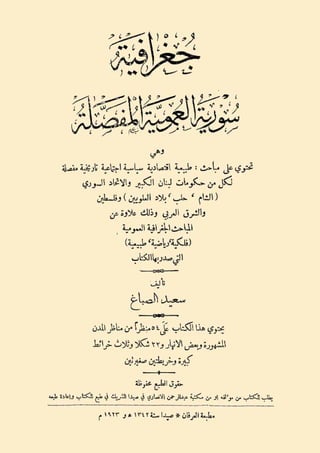 جغرافية
سورية العمومية المفصلة
وهي
تحتوي على مباحث : طبيعية اقتصادية سياسية اجتماعية تاريخية مفصلة
لكل من حكومات لبنان الكبير والاتحاد السوري
( الشام ، حلب ، بلاد العلويين ) وفلسطين
والشرق العربي وذلك علاوة عن
المباحث الجغرافية العمومية
( فلكية ، رياضية ، طبيعية )
التي صدر بها الكتاب
تأليف
سعيد الصباغ
يحتوي هذا الكتاب على ٥٤ منظراً من مناظر المدن
المشهورة وبعض الانهار و ٢٢ شكلا وثلاث خرائط
كبيرة وخريطتين صغيرتين
حقوق الطبع محفوظة
يطلب الكتاب من مؤلفه و من مكتبة عبدالرحمن الانصاري في صيدا الشريك في طبع الكتاب وإعادة طبعه
مطبعة العرفان * صيدا سنة ١٣٤٢ هـ و ١٩٢٣ م